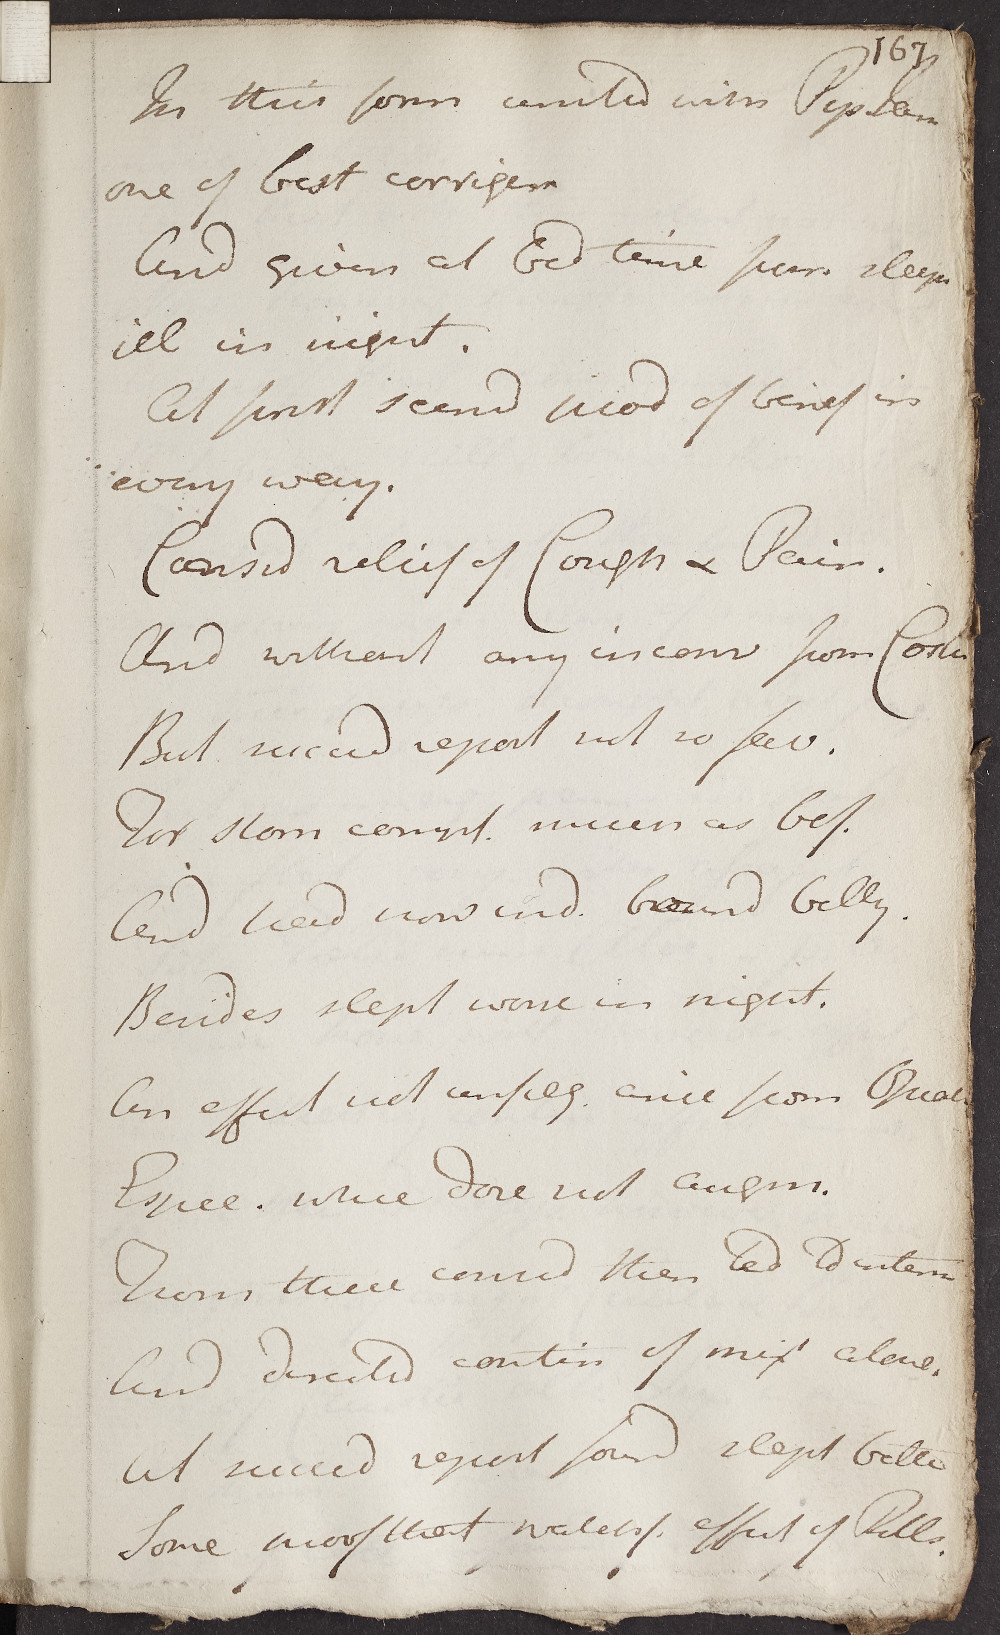 167
In this form united with Pip. Jam
one of best corrigen
And given at bed time from sleep
ill in night.
At first seemd prod of benef in
every way.
Consid relief of Cough & Pain.
And without any inconv from Costiv
But succeed report not so fav.
For stom compt. much as bef.
And had now ind. bound belly.
Besides slept worse in night.
An effect not unfreq. arise from Opiat
Espec. where dose not augm.
From these consid then led to interm
And directed contin of mixt alone.
At succeed report found slept better
Some proof that watchf. effect of Pills.